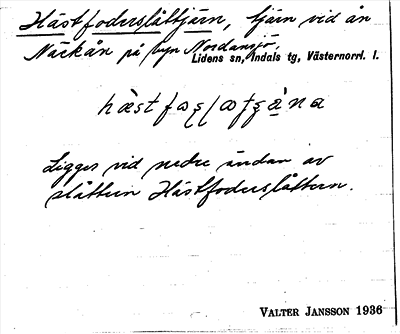 Hästfoderslåttjärn, tjärn vid ån
Näckån på byn Nordansjö.
Lidens sn, Indals tg, Västernorrl. l.
Ligger vid nedre ändan av
slåttern Hästfoderslåttern.
VALTER JANSSON 1936